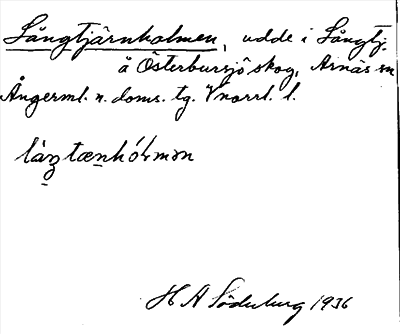 Långtjärnholmen, udde i Långtj.
å Österbursjö skog, Arnäs sn
Ångerml. n. doms. tg. Vnorrl. l.
H A Söderberg 1936